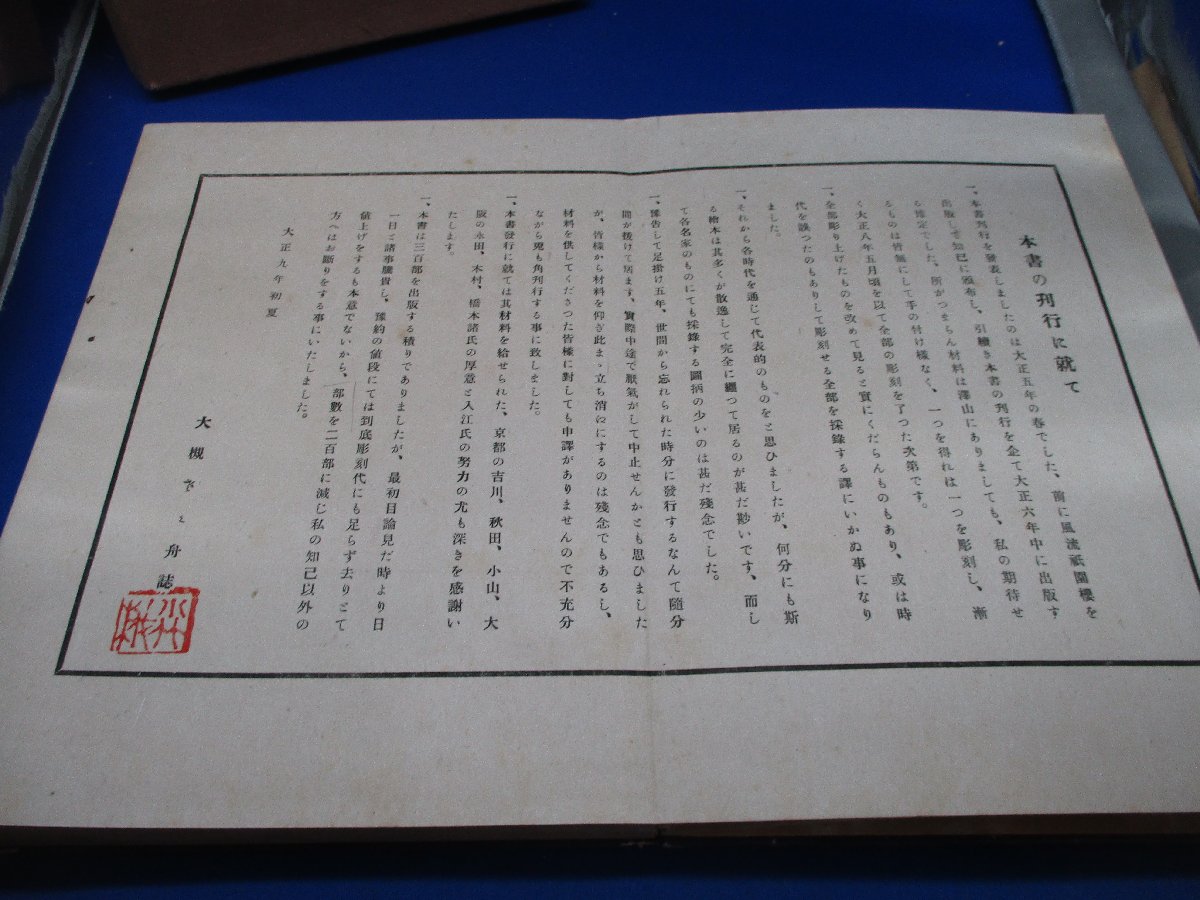 本書の刊行に就て
一、本書刊行を發表しましたのは大正五年の春でした、前に風流祇園櫻を
出版して知己に頒布し、引續き本書の刊行を企て大正六年中に出版す
る豫定でした、所がつまらん材料は澤山にありましても、私の期待せ
るものは皆無にして手の付け樣なく、一つを得れば一つを彫刻し、漸
く大正八年五月頃を以て全部の彫刻を了つた次第です。
一、全部彫り上げたものを改めて見ると實にくだらんものもあり、或は時
代を誤つたのもありして彫刻せる全部を採錄する譯にいかぬ事になり
ました。
一、それから各時代を通じて代表的のものをと思ひましたが、何分にも斯
る繪本は其多くが散逸して完全に纒つて居るのが甚だ尠いです、而し
て各名家のものにても採錄する圖柄の少いのは甚だ殘念でした。
一、豫告して足掛け五年、世間から忘れられた時分に發行するなんて隨分
間が拔けて居ます、實際中途で厭氣がして中止せんかとも思ひました
が、皆樣から材料を仰ぎ此まゝ立ち消にするのは殘念でもあるし、
材料を供してくださつた皆樣に對しても申譯がありませんので不充分
ながら兎も角刊行する事に致しました。
一、本書發行に就ては其材料を給せられた、京都の吉川、秋田、小山、大
阪の永田、木村、橋本諸氏の厚意と入江氏の努力の尤も深きを感謝い
たします。
一、本書は三百部を出版する積りでありましたが、最初目論見だ時より日
一日と諸事騰貴し、豫約の値段にては到底彫刻代にも足らず去りとて
値上げをするも本意でないから、部數を二百部に減じ私の知己以外の
方へはお斷りをする事にいたしました。
大正九年初夏
大槻 舟誌